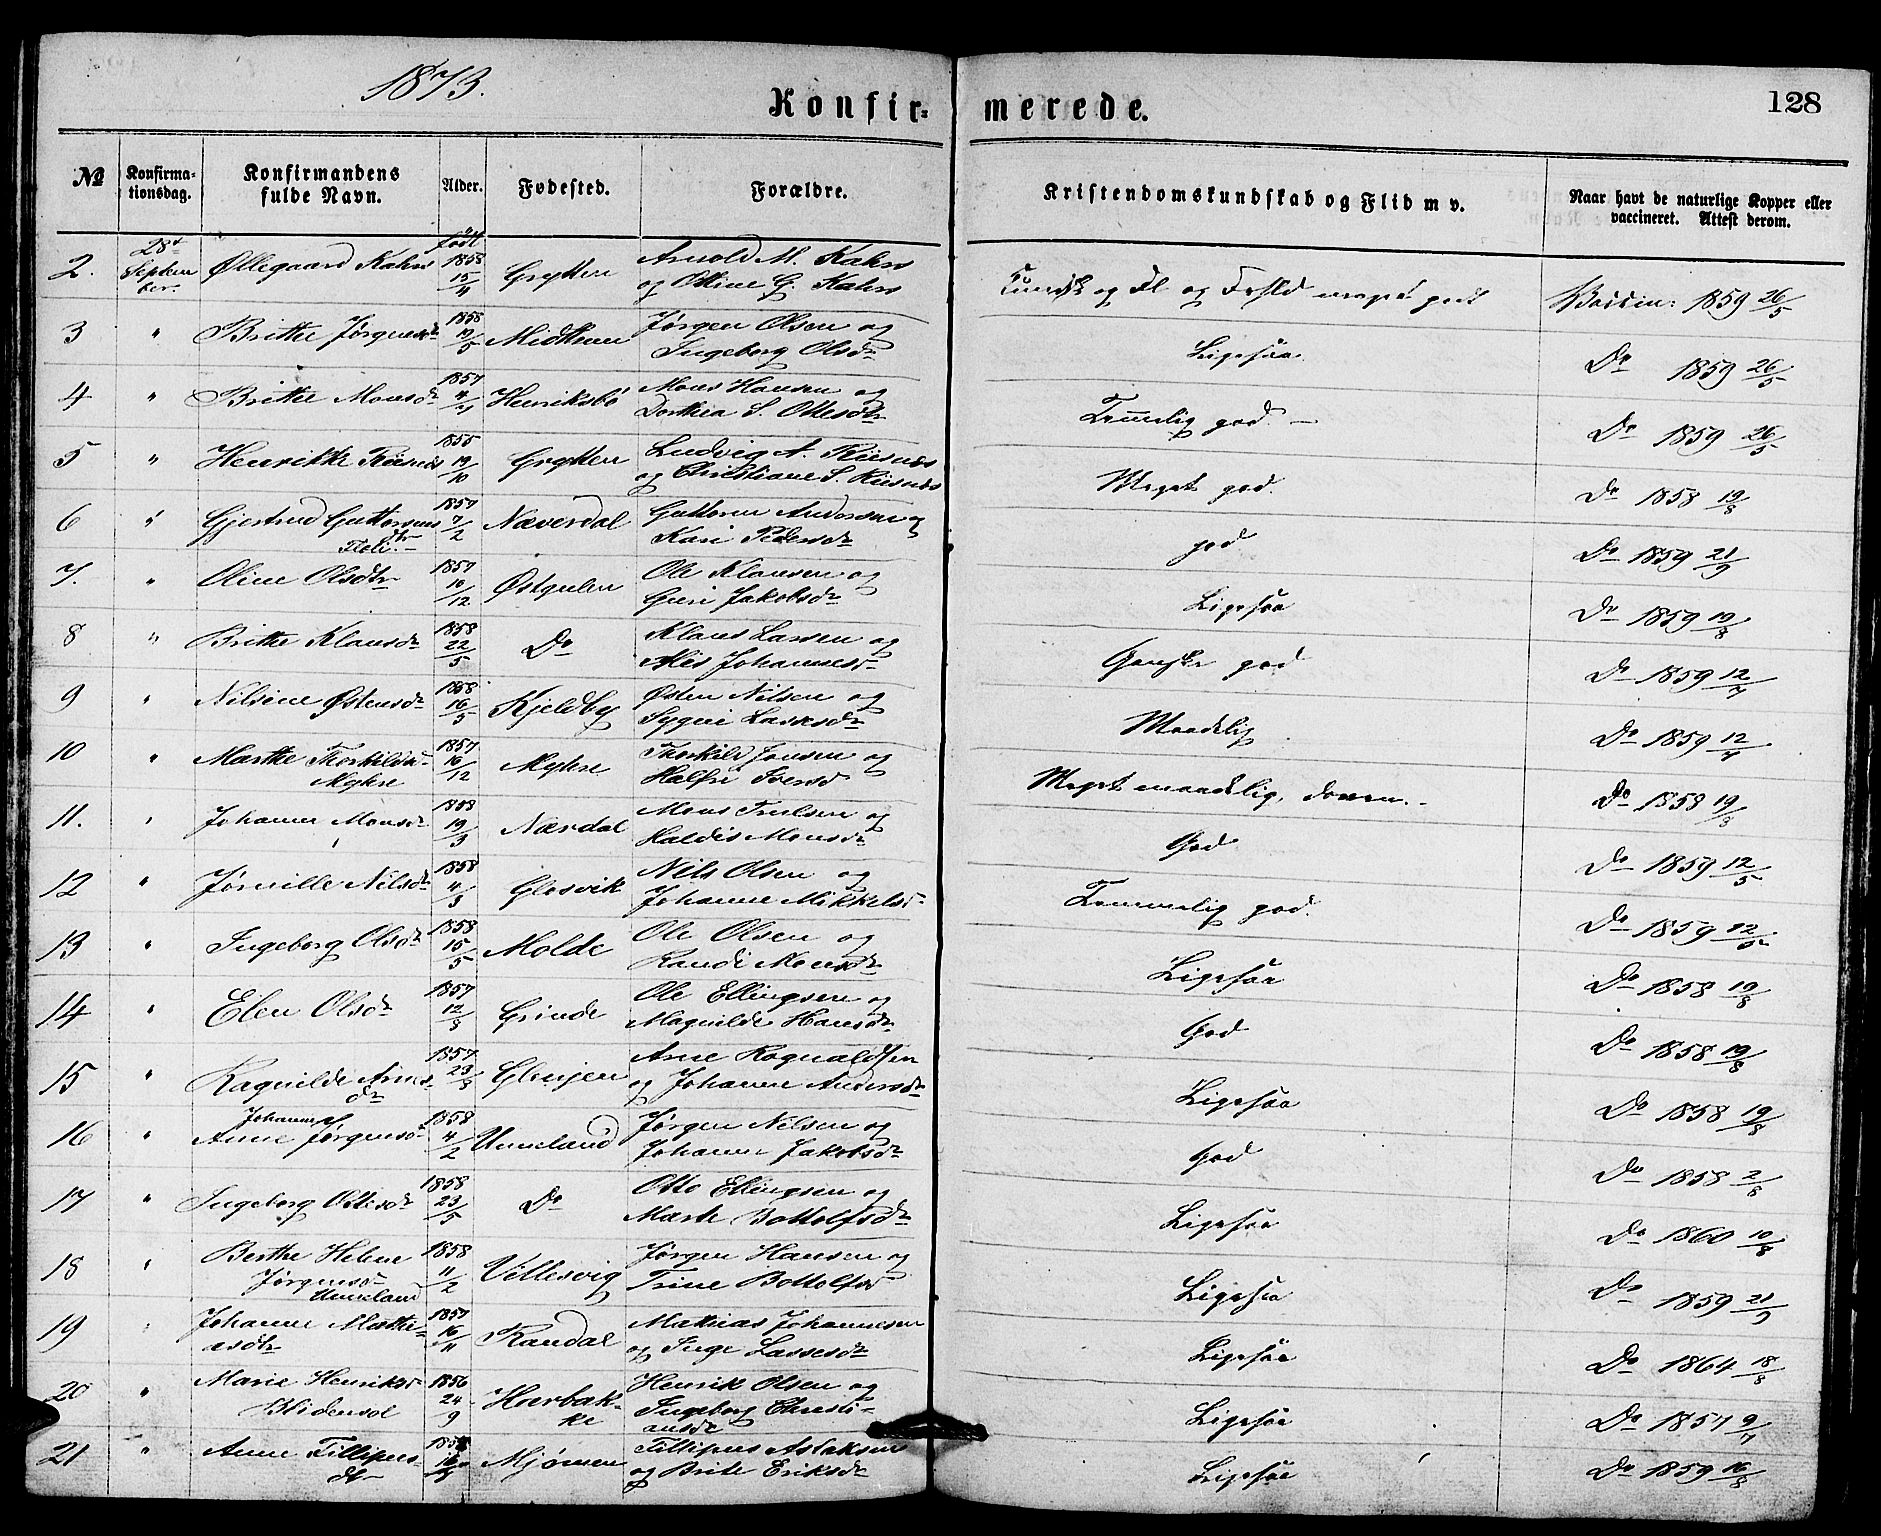 1873.
Konfir= merede.
128
№ Konfirma-tionsdag. Konfirmandens fulde Navn. Alder. Fødested. Forældre. Kristendomskundskab og Flid m v. Naar havt de naturlige Kopper eller vaccineret. Attest derom.
2. 28de September. Øllegaard Kahrs født 1858 15/11 Grytten Arnold M. Kahrs og Ottine G. Kahrs Kundsk og Fl og Forhld meget godt Vaccin: 1859 26/5
3 " Brithe Jørgensdr 1858 19/5 Midttun Jørgen Olsen og Ingeborg Olsdr Ligesaa Do 1859 26/5
4 " Brithe Monsdr 1857 4/7 Henriksbø Mons Hansen og Dorthea S. Ottesdtr Temmelig god. Do 1859 26/5
5 " Henrikke Riisnæs 1855 19/10 Grytten Ludvig A. Riisnæs og Christiane S. Riisnæs Meget god. Do 1858 19/8
6 " Gjertrud Guttormsdtr Floli. 1857 7/2 Næverdal Guttorm Andersen og Kari Pedersdr god Do 1859 21/9
7. " Oline Olsdtr 1857 10/12 Østgulen Ole Klausen og Guri Jakobsdr Ligesaa Do 1859 19/8
8 " Brithe Klausdr 1858 22/5 Do Klaus Larsen og Alis Johannesd Ganske god Do 1859 12/7
9 " Nilsine Østensdr 1858 16/5 Kjeldby Østen Nilsen og Sygni Lassesdr Maadelig Do 1859 12/7
10 " Marthe Thorkildsd Myhre 1857 16/12 Myhre Thorkild Jonsen og Halfri Iversd Meget maadelig, doven. Do 1858 19/8
11. " Johanne Monsdr 1858 19/3 Nærdal Mons Trulsen og Haldis Monsdr God Do 1859 12/5
12 " Jørnille Nilsdr 1858 4/3 Glosvik Nils Olsen og Johanne Mikkelsd Temmelig god. Do 1859 12/5
13 " Ingeborg Olsdr 1858 15/5 Molde Ole Olsen og Randi Monsdr Ligesaa Do 1858 19/8
14 " Elen Olsdr 1857 12/8 Grinde Ole Ellingsen og Magnilde Hansdr God Do 1858 19/8
15 " Ragnilde Arnesdr 1857 23/8 Glenjen Arne Rognaldsen og Johanne Andersdr Ligesaa Do 1858 19/8
16 " Johanne Anne Jørgensd 1858 4/2 Unneland Jørgen Nilsen og Johanne Jakobsdr God Do 1858 2/8
17 " Ingeborg Ottesdr 1858 23/5 Do Otto Ellingsen og Marte Bottolfsdr Ligesaa Do 1860 10/8
18 " Berthe Helene Jørgensd Unneland 1858 11/2 Villesvig Jørgen Hansen og Trine Bottolfsd Ligesaa Do 1859 21/9
19 " Johanne Mathiasdtr 1857 16/11 Randal Mathias Johannesen og Inge Lassesdr Ligesaa Do 1864 18/8
20 " Marie Henriksd Blidensol 1856 24/9 Herbakke Henrik Olsen og Ingeborg Christiansdr Ligesaa Do 1857 9/7
21 " Anne Fillipusdtr Mjømen Fillipus Aslaksen og Brite Eriksdr Ligesaa Do 1859 16/8